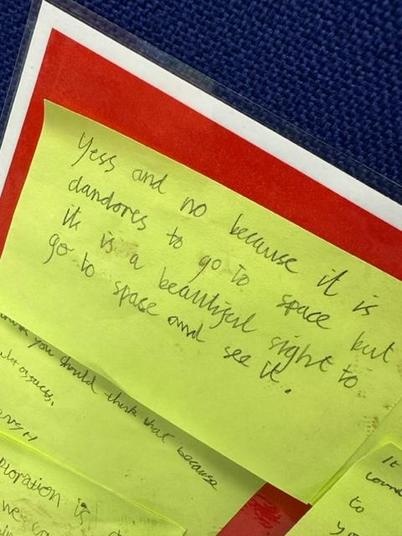 Yess and no because it is
dandores to go to space but
it is a beautiful sight to
go to space and see it.
you should think that because
ploration is
It
to